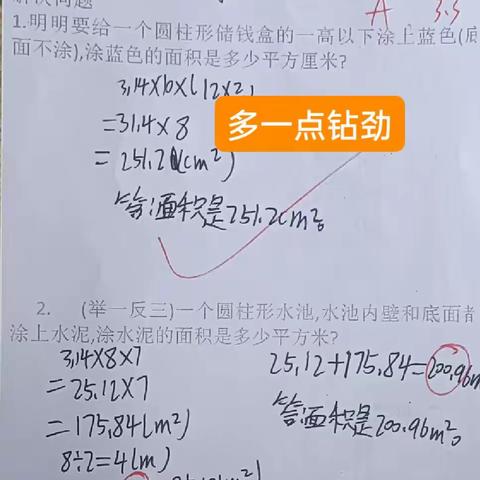 解决问题
A 3.3
1.明明要给一个圆柱形储钱盒的一高以下涂上蓝色(底
面不涂),涂蓝色的面积是多少平方厘米?
=31.4×8
多一点钻劲
=251.2(cm²)
答:面积是251.2cm²。
2. (举一反三)一个圆柱形水池,水池内壁和底面都
涂上水泥,涂水泥的面积是多少平方米?
3.14×8×7
=25.12×7
=175.84(m²)
8÷2=4(m)
25.12+175.84=200.96m
答:面积是200.96m²。